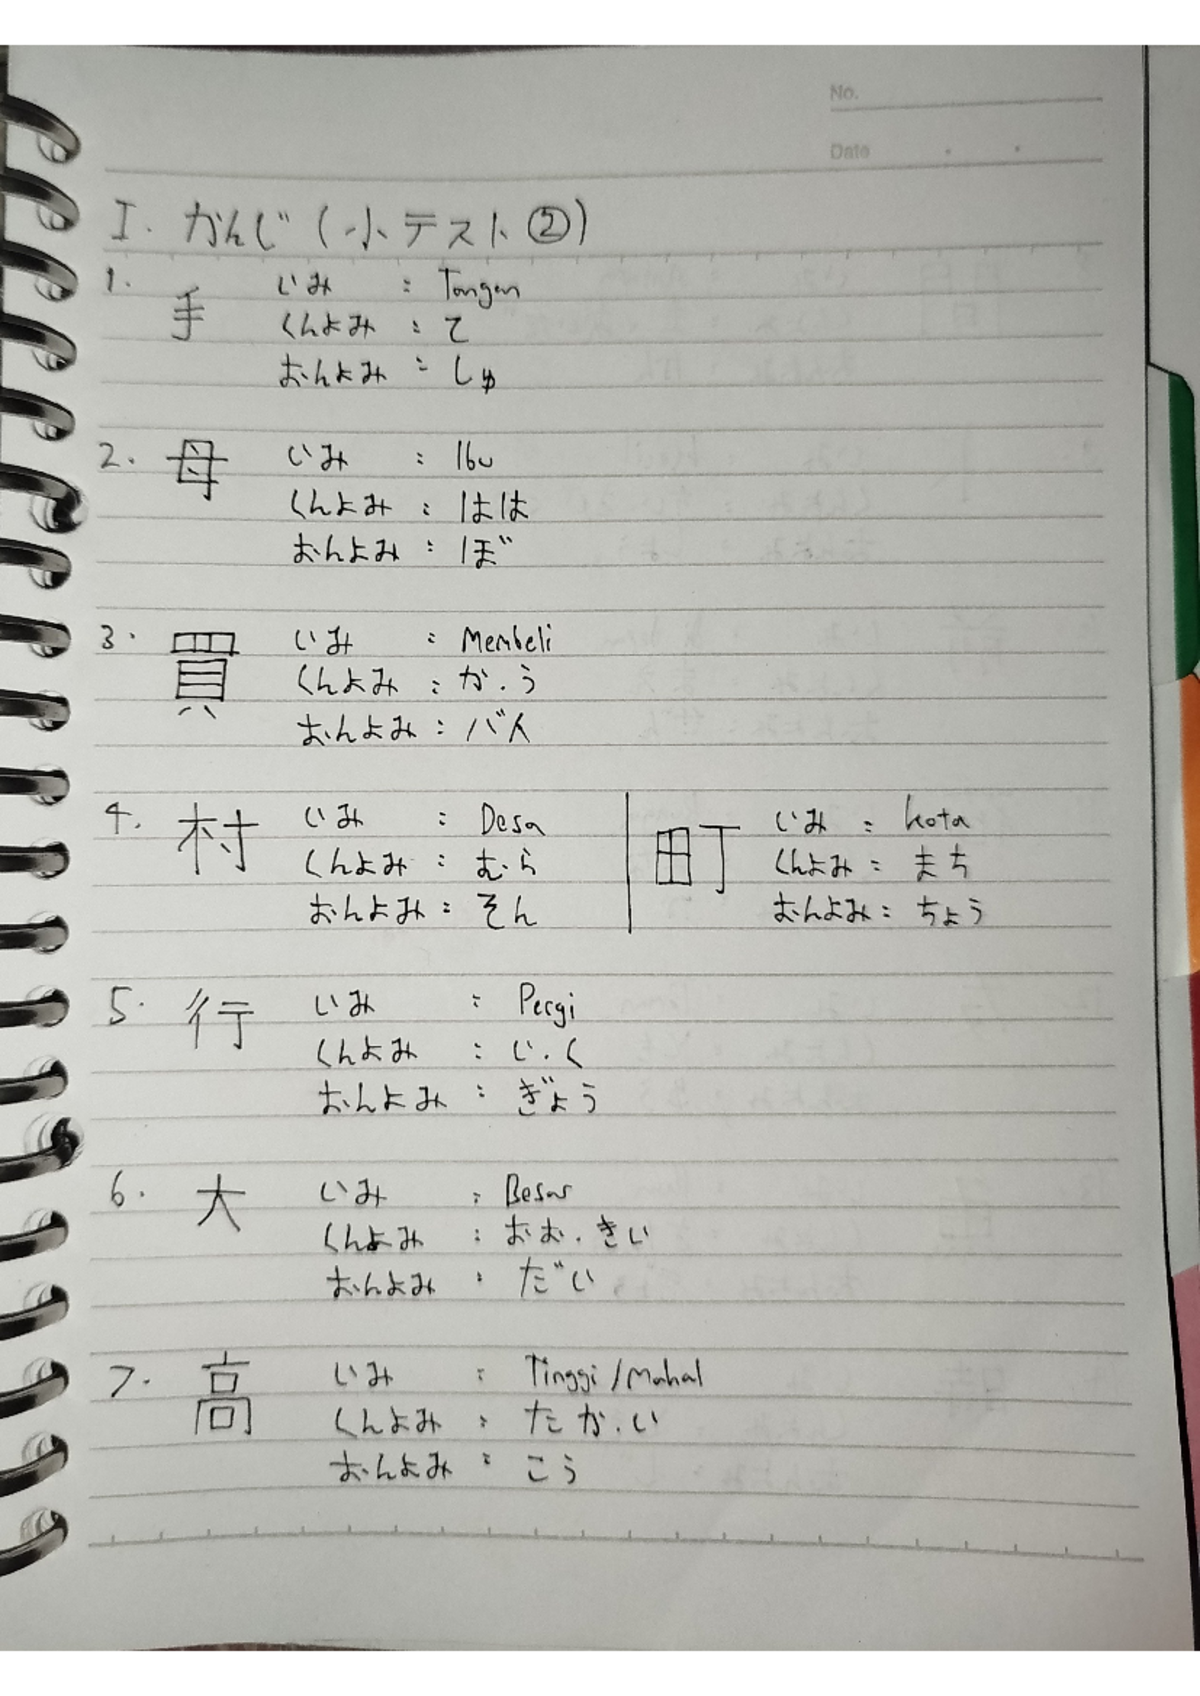 No.
Date
I. かんじ (小テスト②)
1. 手 いみ : Tangan
くんよみ : て
おんよみ : しゅ
2. 母 いみ : Ibu
くんよみ : はは
おんよみ : ぼ
3. 買 いみ : Membeli
くんよみ : か.う
おんよみ : バイ
4. 村 いみ : Desa
くんよみ : むら
おんよみ : そん
町 いみ : kota
くんよみ : まち
おんよみ : ちょう
5. 行 いみ : Pergi
くんよみ : い.く
おんよみ : ぎょう
6. 大 いみ : Besar
くんよみ : おお.きい
おんよみ : だい
7. 高 いみ : Tinggi/Mahal
くんよみ : たか.い
おんよみ : こう